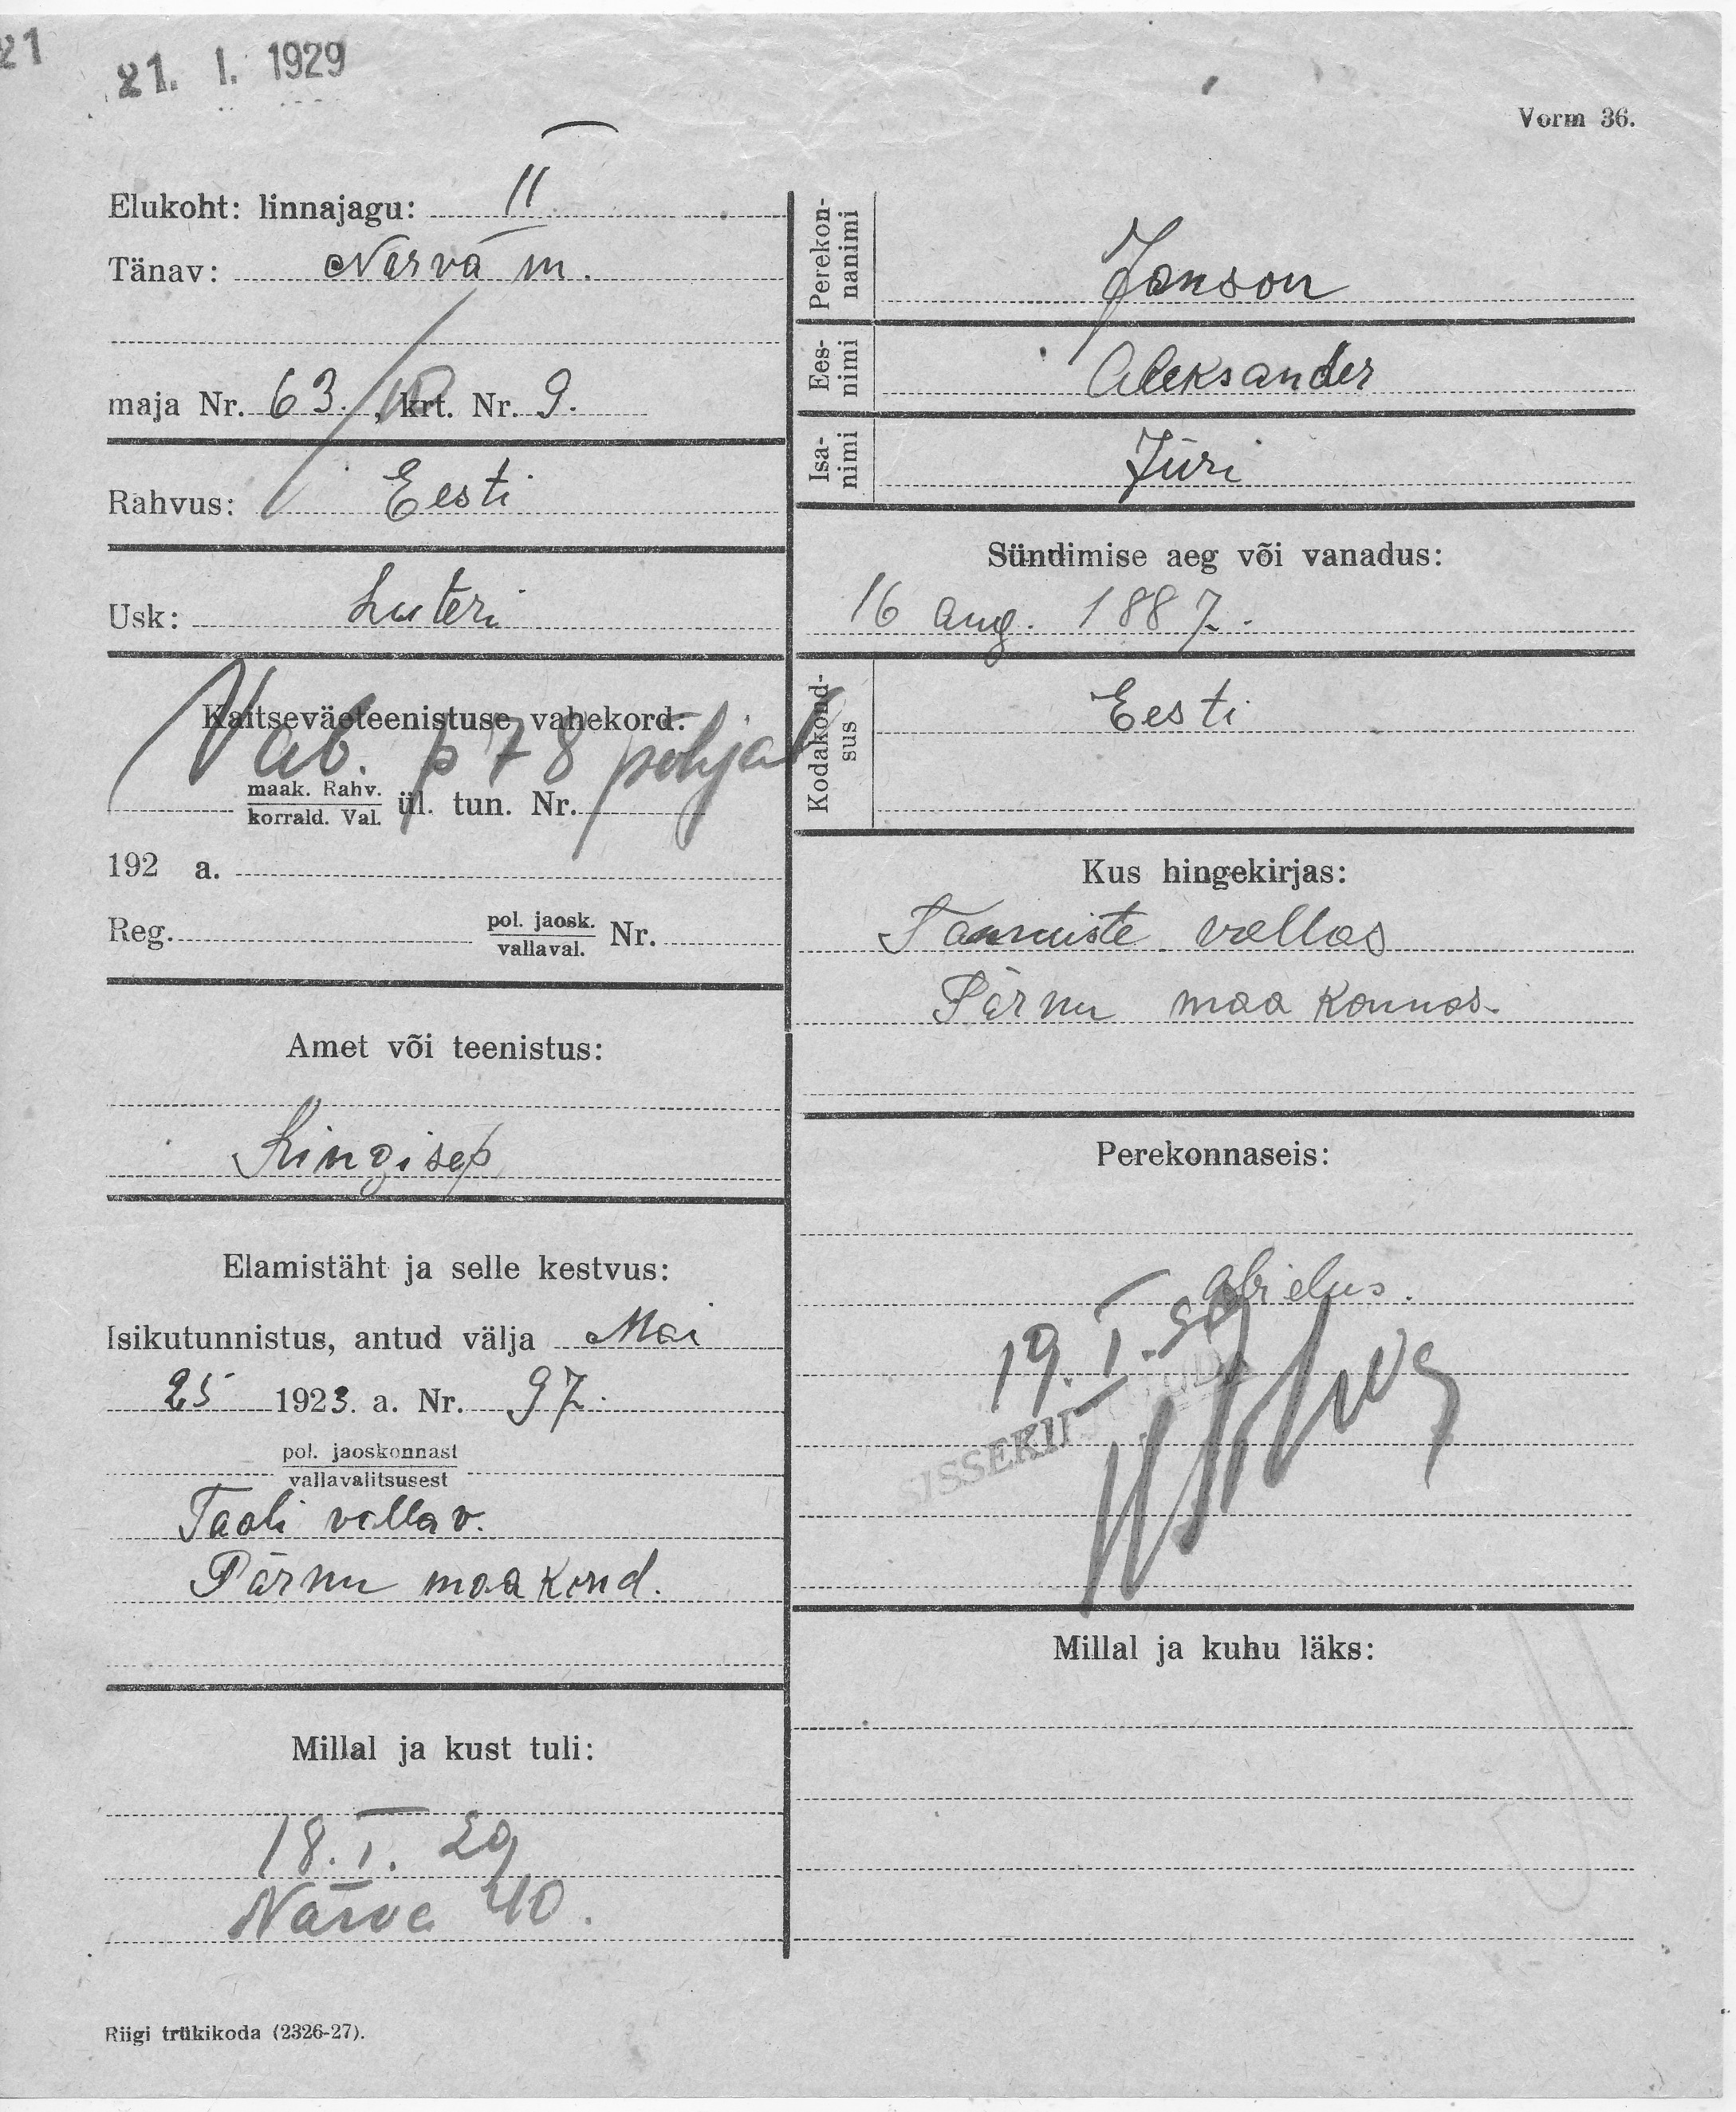 21
21. I. 1929
Vorm 36.
Elukoht: linnajagu: II
Tänav: Narva m.
maja Nr. 63. , krt. Nr. 9.
Rahvus: Eesti
Usk: Luteri
Kaitseväeteenistuse vahekord:
Vab. p 78 põhjal
maak. Rahv.
korrald. Val. ül. tun. Nr.
192 a.
Reg. pol. jaosk.
vallaval. Nr.
Amet või teenistus:
Kingisep
Elamistäht ja selle kestvus:
Isikutunnistus, antud välja Mai
25 1923. a. Nr. 97.
pol. jaoskonnast
vallavalitsusest
Taali vallav.
Pärnu maakond.
Millal ja kust tuli:
18. I. 29
Narva 40.
Riigi trükikoda (2326-27).
Perekon-
nanimi
Janson
Ees-
nimi
Aleksander
Isa-
nimi
Jüri
Sündimise aeg või vanadus:
16 aug. 1887.
Kodakond-
sus
Eesti
Kus hingekirjas:
Tammiste vallas
Pärnu maakonnas.
Perekonnaseis:
abielus.
19. I.
Millal ja kuhu läks: